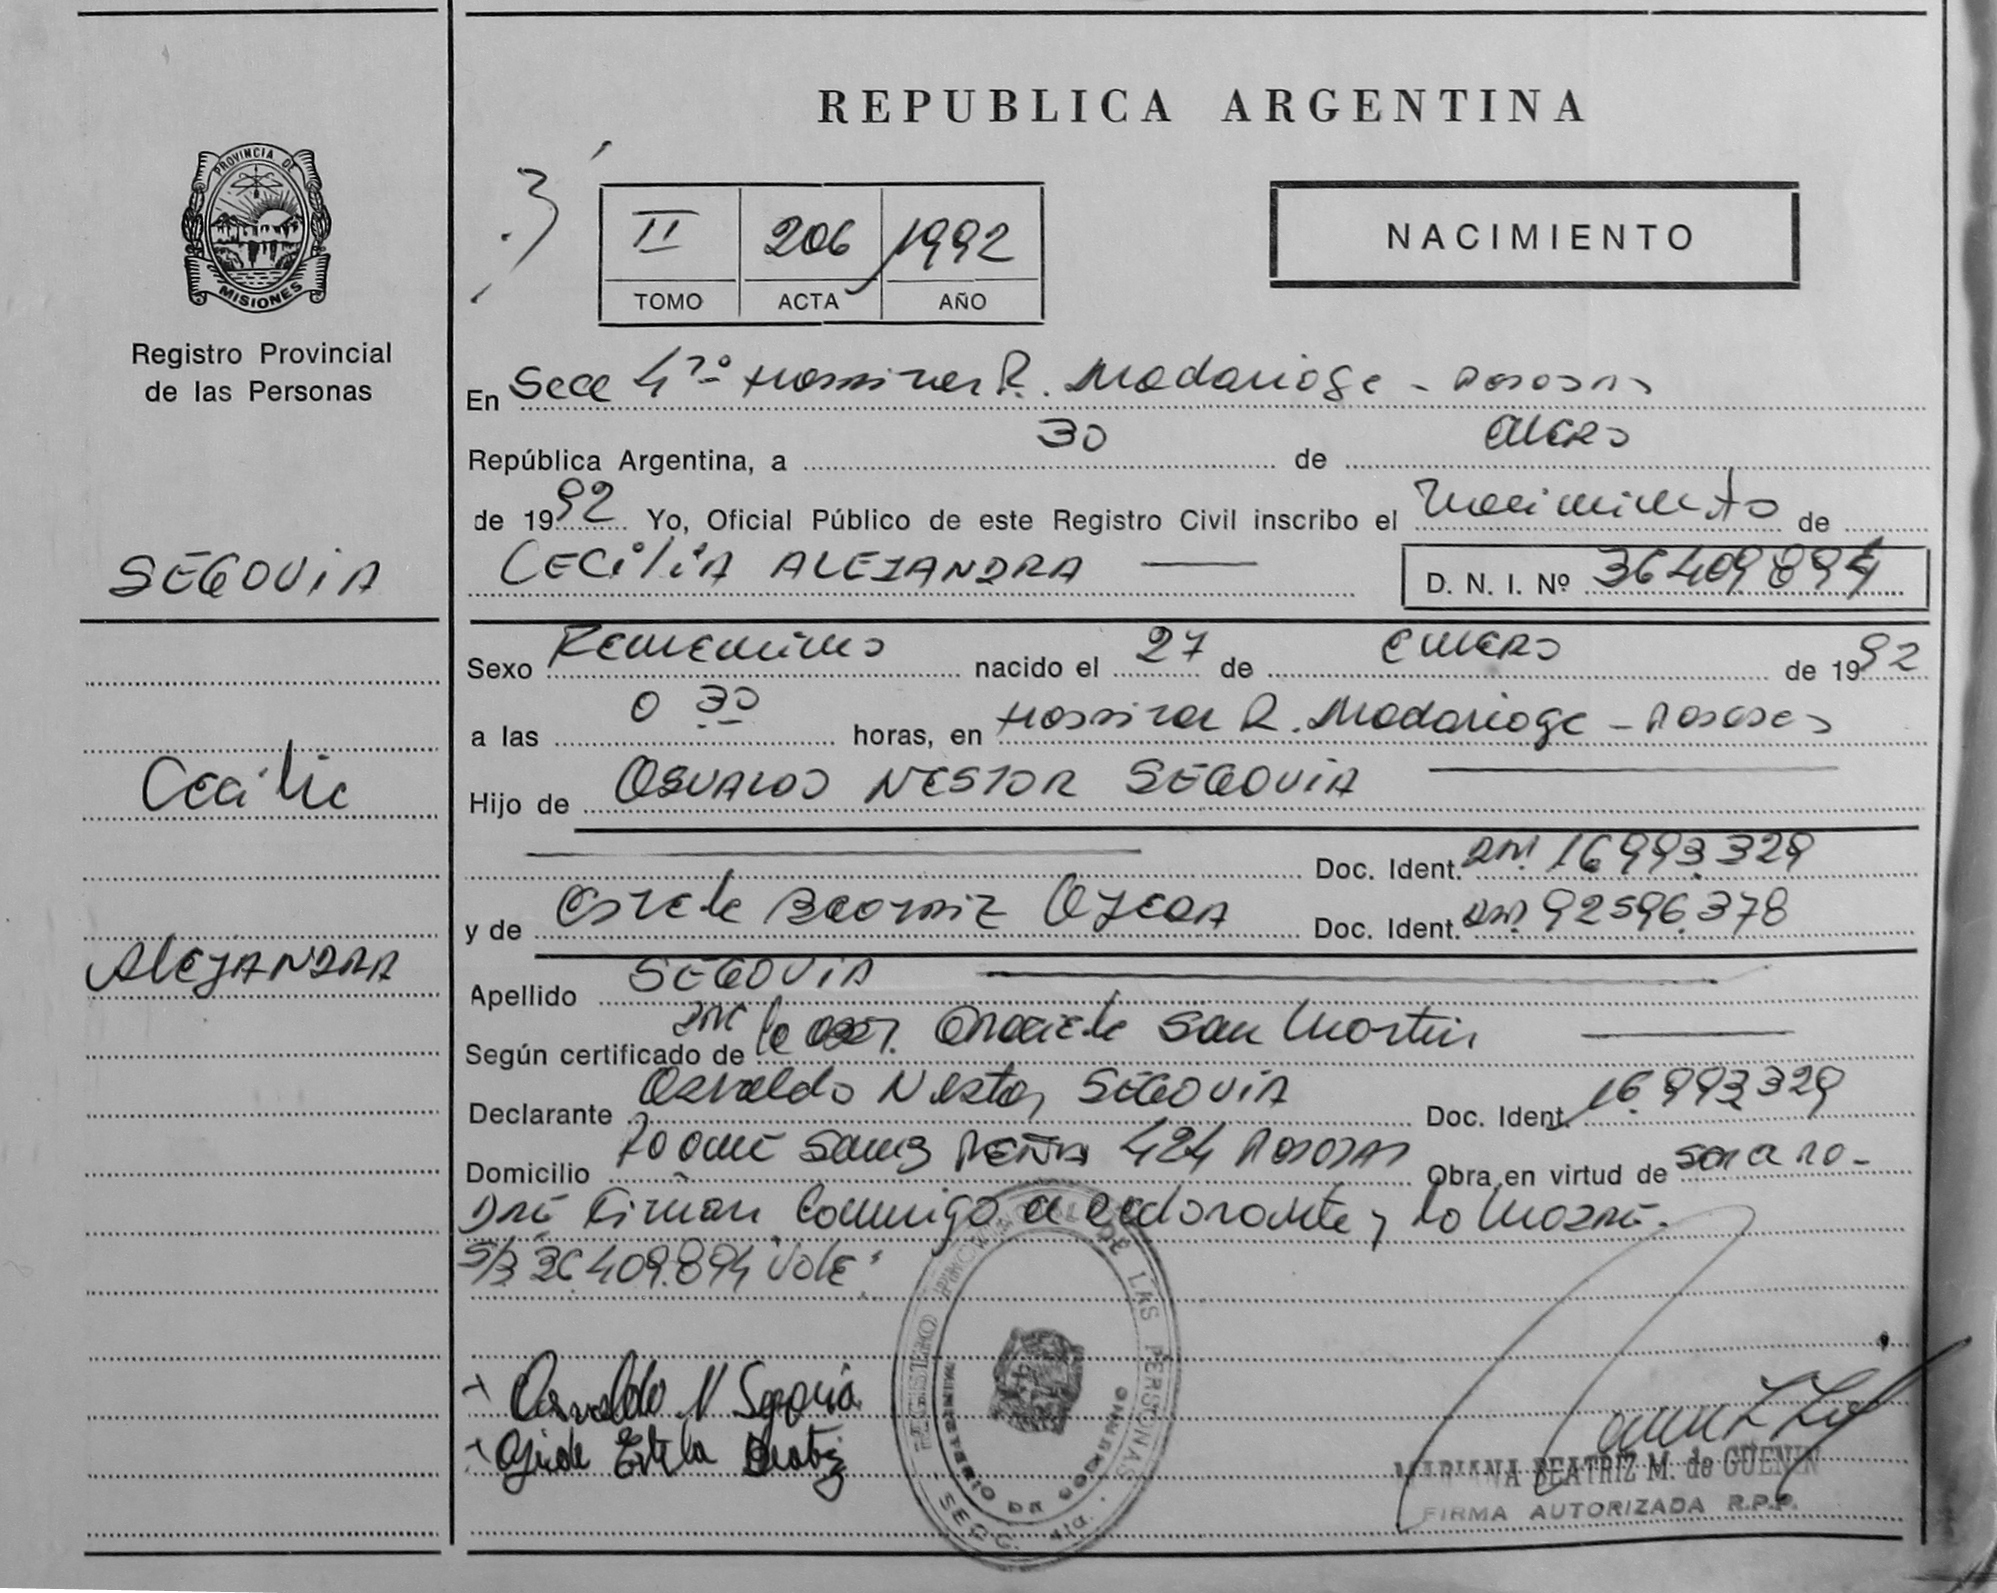 REPUBLICA ARGENTINA
PROVINCIA DE
MISIONES
Registro Provincial
de las Personas
II 206 1992
TOMO ACTA AÑO
NACIMIENTO
En Secc 4ta Hospital R. Madariaga - Posadas
República Argentina, a 30 de enero
de 1992 Yo, Oficial Público de este Registro Civil inscribo el nacimiento de
SEGOVIA
CECILIA ALEJANDRA
D. N. I. Nº 36409894
Sexo Femenino nacido el 27 de enero de 1992
a las 0 30 horas, en Hospital R. Madariaga - Posadas
Cecilia
Hijo de OSVALDO NESTOR SEGOVIA
Doc. Ident. DNI 16993.329
y de Estela Beatriz OJEDA Doc. Ident. DNI 92596.378
ALEJANDRA
Apellido SEGOVIA
Según certificado de la San Martin
Declarante Osvaldo Nestor SEGOVIA Doc. Ident. 16.993.329
Domicilio Roque Saenz PEÑA 424 Posadas Obra en virtud de
Firman Conmigo el declarante y la Madre.
S/B 36409.894 Vale
Osvaldo N Segovia
Ojeda Estela Beatriz
REGISTRO PROVINCIAL DE LAS PERSONAS
MINISTERIO DE GOBIERNO
SECC. 4ta.
MARIANA BEATRIZ M. de GUENIN
FIRMA AUTORIZADA R.P.P.